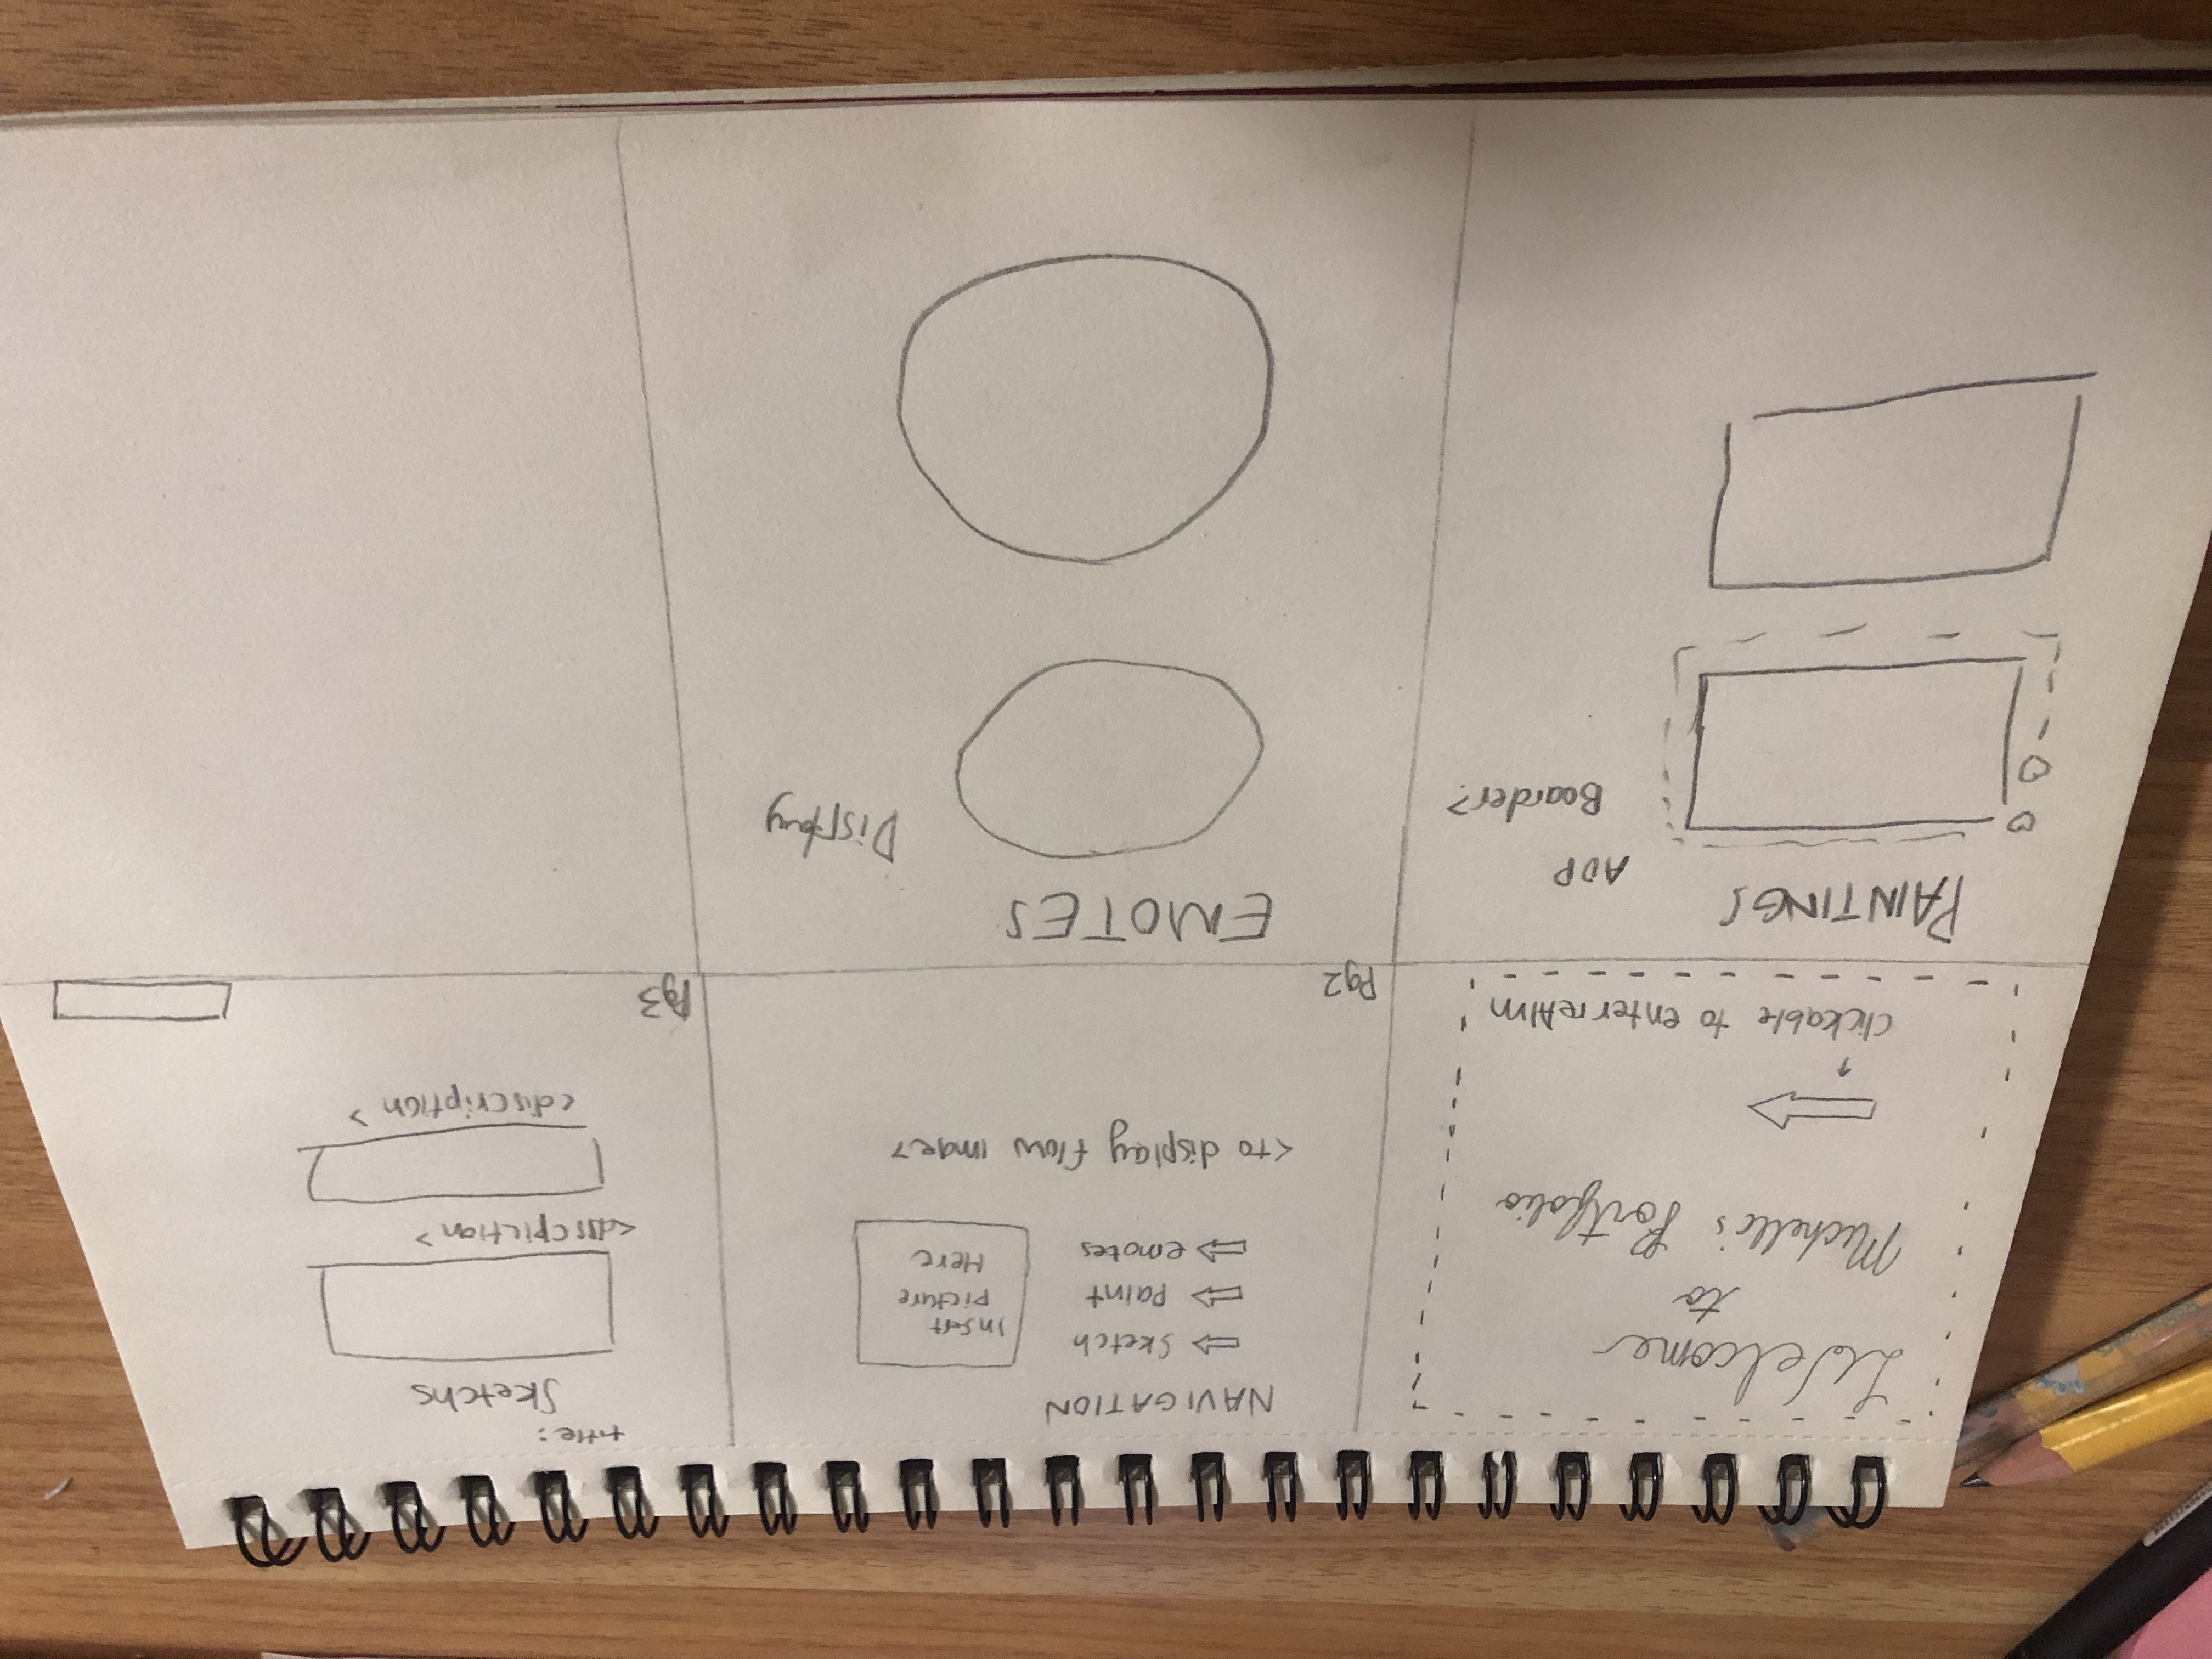 Welcome
to
Michelle's Portfolio
clickable to enter reAlm
NAVIGATION
⇨ Sketch
⇨ Paint
⇨ emotes
Insert
picture
Here
<to display flow imae>
Pg2
title:
Sketchs
<discpiction>
<discription>
Pg3
PAINTINGS
ADP
Boarder?
EMOTES
Display